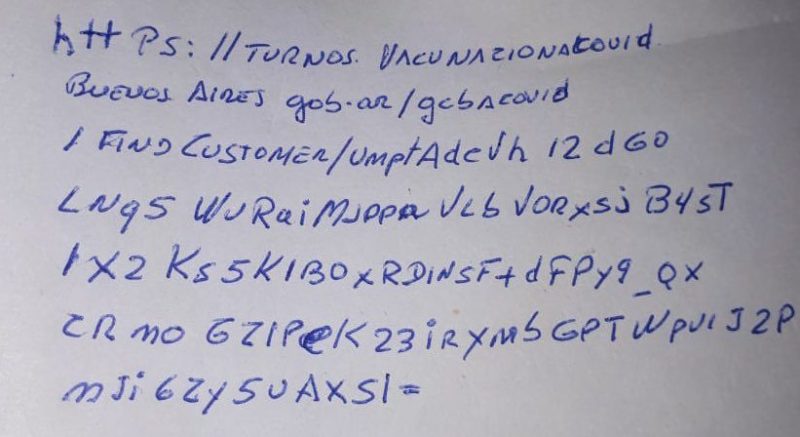 httPS: // TURNOS. VACUNACIONACOVID
BUENOS AIRES gob.ar/gcbAcovid
/ FIND CUSTOMER/UmptAdcVh 12 dGO
LNq5 WURaiMJppa VLb VORxSj B4sT
1X2 Ks5K1BOxRDiNSF+dFPy9_QX
ZRmo GZ1PeK23iRXMbGPTWpVLJ2P
mJi6Zy5UAXSI=